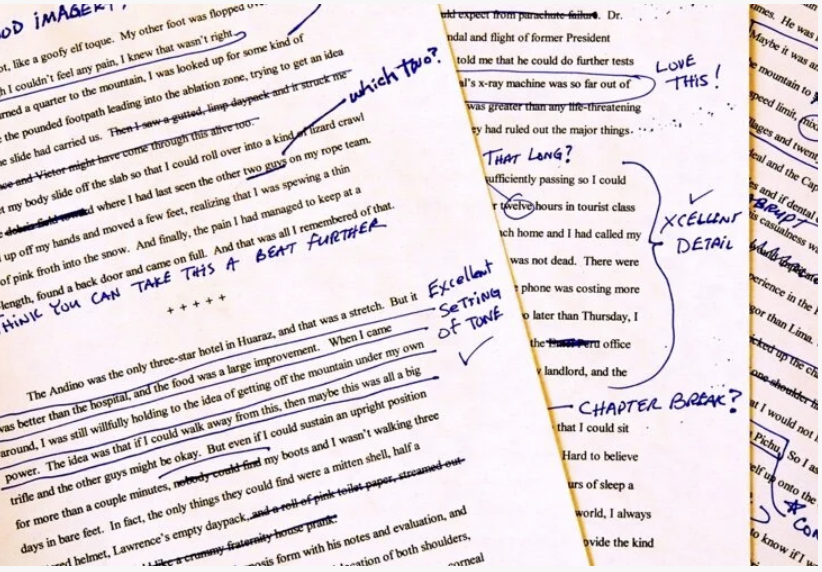 OD IMAGERY!
ot, like a goofy elf toque. My other foot was flopped over
h I couldn't feel any pain, I knew that wasn't right.
rned a quarter to the mountain, I was looked up for some kind of
the pounded footpath leading into the ablation zone, trying to get an idea
e slide had carried us. Then I saw a gutted, limp daypack and it struck me
ce and Victor might have come through this alive too.
which two?
t my body slide off the slab so that I could roll over into a kind of lizard crawl
d where I had last seen the other two guys on my rope team.
up off my hands and moved a few feet, realizing that I was spewing a thin
of pink froth into the snow. And finally, the pain I had managed to keep at a
length, found a back door and came on full. And that was all I remembered of that.
THINK YOU CAN TAKE THIS A BEAT FURTHER
+ + + + +
The Andino was the only three-star hotel in Huaraz, and that was a stretch. But it
was better than the hospital, and the food was a large improvement. When I came
around, I was still willfully holding to the idea of getting off the mountain under my own
power. The idea was that if I could walk away from this, then maybe this was all a big
trifle and the other guys might be okay. But even if I could sustain an upright position
for more than a couple minutes, nobody could find my boots and I wasn't walking three
days in bare feet. In fact, the only things they could find were a mitten shell, half a
red helmet, Lawrence's empty daypack, and a roll of pink toilet paper, streamed out
like a crummy fraternity house prank.
nosis form with his notes and evaluation, and
location of both shoulders,
corneal
Excellent
SETTING
OF TONE
uld expect from parachute failure. Dr.
ndal and flight of former President
told me that he could do further tests
al's x-ray machine was so far out of
was greater than any life-threatening
ey had ruled out the major things.
LOVE
THIS!
THAT LONG?
sufficiently passing so I could
r twelve hours in tourist class
ach home and I had called my
was not dead. There were
phone was costing more
o later than Thursday, I
the office
landlord, and the
XCELLENT
DETAIL
CHAPTER BREAK?
that I could sit
Hard to believe
urs of sleep a
world, I always
ovide the kind
mes. He was
Maybe it was
he mountain to
speed limit,
llages and twent
deal and the Cap
es and if dental
ABRUPT
is casualness wa
perience in the
gor than Lima.
icked up the cha
one shoulder
at I would not
Pichu, So I as
elf up onto the
CON
to know if I w